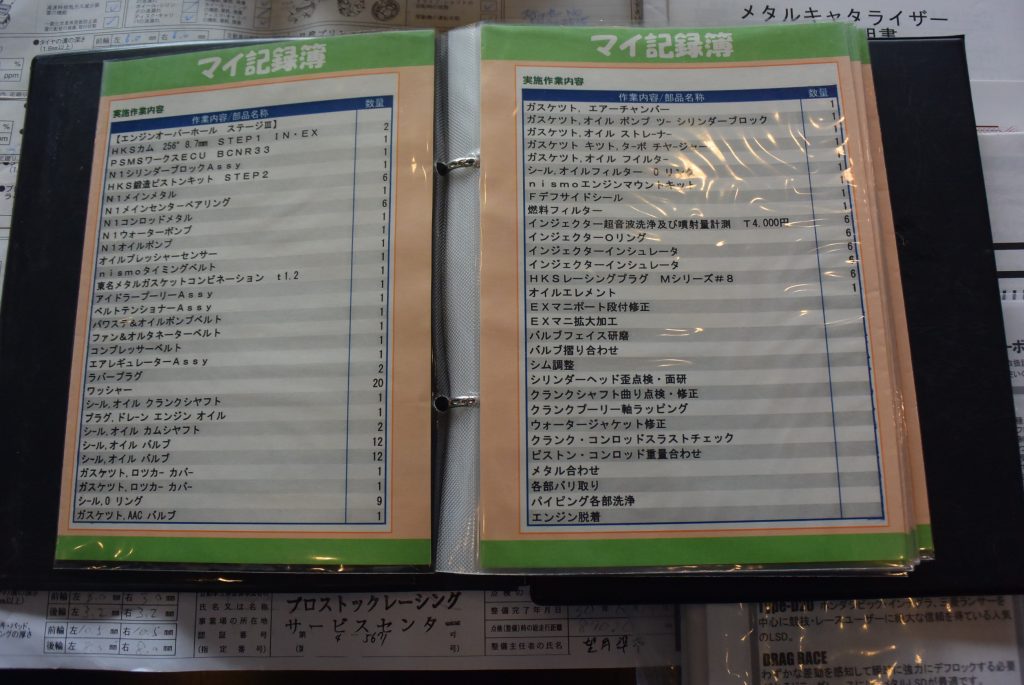 メタルキャタライザー
マイ記録簿
実施作業内容
作業内容/部品名称 数量
【エンジンオーバーホール ステージⅢ】
HKSカム 256° 8.7mm STEP1 IN・EX 2
PSMSワークスECU BCNR33 1
N1シリンダーブロックAssy 1
HKS鍛造ピストンキット STEP2 1
N1メインメタル 6
N1メインセンターベアリング 1
N1コンロッドメタル 6
N1ウォーターポンプ 1
N1オイルポンプ 1
オイルプレッシャーセンサー 1
nismoタイミングベルト 1
東名メタルガスケットコンビネーション t1.2 1
アイドラープーリーAssy 1
ベルトテンショナーAssy 1
パワステ&オイルポンプベルト 1
ファン&オルタネーターベルト 1
コンプレッサーベルト 1
エアレギュレーターAssy 1
ラバープラグ 2
ワッシャー 20
シール,オイル クランクシヤフト 1
プラグ,ドレーン エンジン オイル 1
シール,オイル カムシヤフト 2
シール,オイル バルブ 12
シール,オイル バルブ 12
ガスケツト,ロツカー カバー 1
ガスケツト,ロツカー カバー 1
シール,O リング 9
ガスケツト,AAC バルブ 1
マイ記録簿
実施作業内容
作業内容/部品名称 数量
ガスケツト, エアーチャンバー 1
ガスケツト,オイル ポンプ ツー シリンダーブロック 1
ガスケツト,オイル ストレーナー 1
ガスケツト キツト,ターボ チヤージャー 1
ガスケツト,オイル フイルター 1
シール,オイルフィルター O リング
nismoエンジンマウントキット
Fデフサイドシール
燃料フィルター 1
インジェクター超音波洗浄及び噴射量計測 T4.000円 6
インジェクターOリング 6
インジェクターインシュレータ 6
インジェクターインシュレータ 6
HKSレーシングプラグ Mシリーズ#8 6
オイルエレメント 1
EXマニポート段付修正
EXマニ拡大加工
バルブフェイス研磨
バルブ摺り合わせ
シム調整
シリンダーヘッド歪点検・面研
クランクシャフト曲り点検・修正
クランクプーリー軸ラッピング
ウォータージャケット修正
クランク・コンロッドスラストチェック
ピストン・コンロッド重量合わせ
メタル合わせ
各部バリ取り
パイピング各部洗浄
エンジン脱着
プロストックレーシング
サービスセンター
氏名又は名称
事業場の所在地
認証番号
(指定番号)
整備完了年月日
点検(整備)時の総走行距離
整備主任者の氏名
中心に競技・レースユーザーに絶大な信頼を得ている人気
のLSD。
DRAG RACE